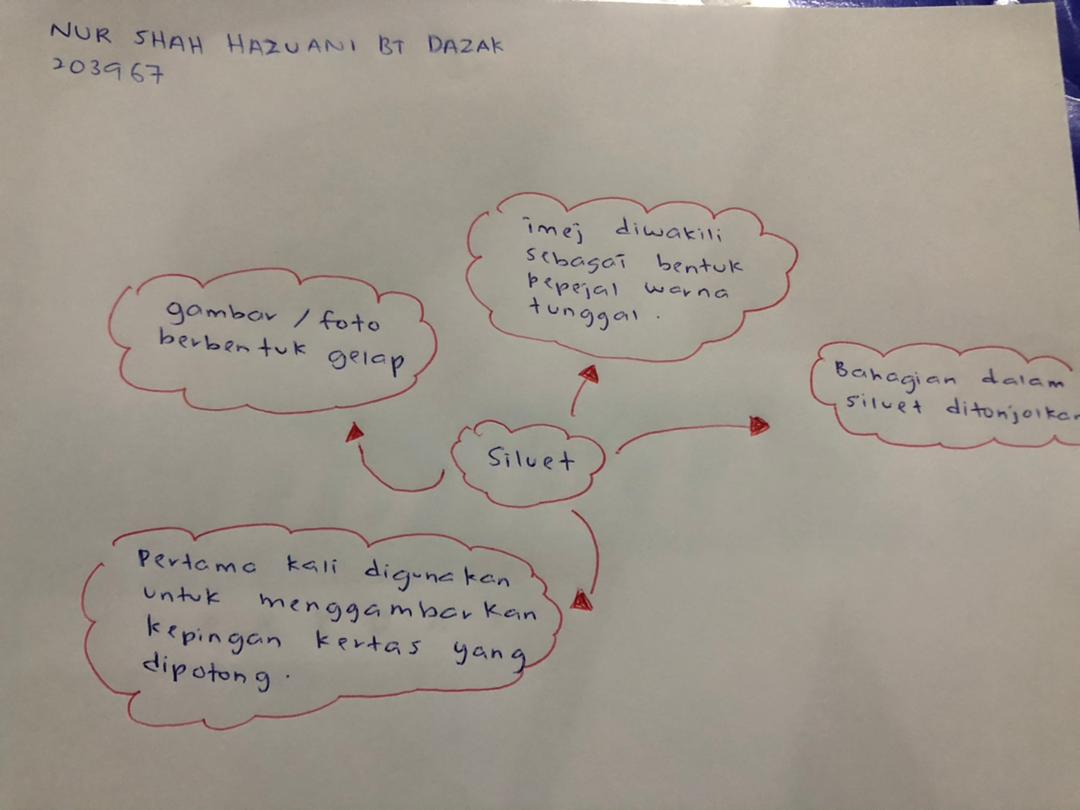 NUR SHAH HAZUANI BT DAZAK
203967
imej diwakili
sebagai bentuk
pepejal warna
tunggal.
gambar / foto
berbentuk gelap
Bahagian dalam
siluet ditonjolkan
Siluet
Pertama kali digunakan
untuk menggambarkan
kepingan kertas yang
dipotong.